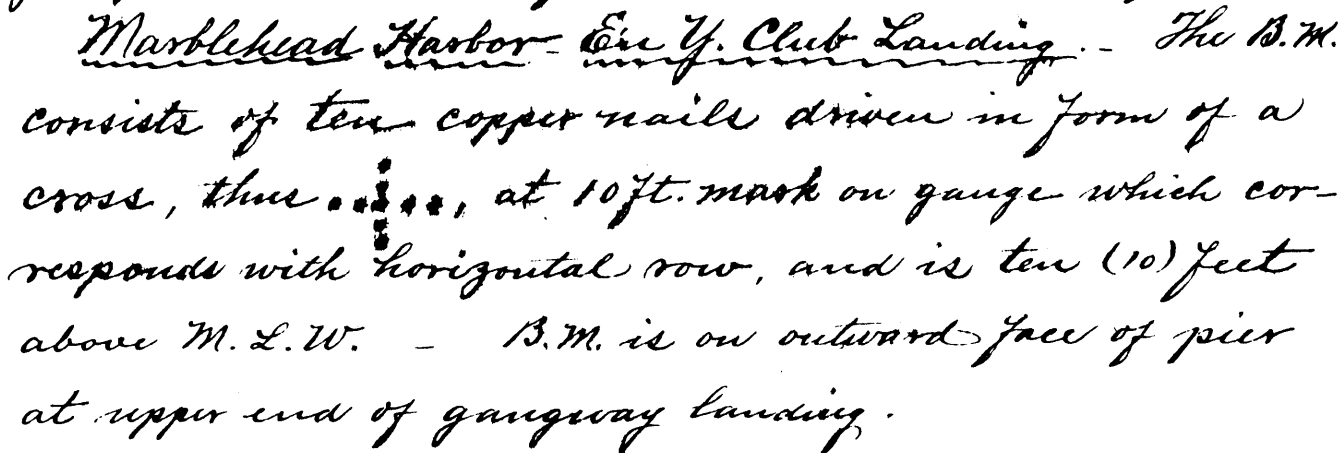 Marblehead Harbor - Ea Y. Club Landing. - The B.M.
consists of ten copper nails driven in form of a
cross, thus , at 10 ft. mark on gauge which cor-
responds with horizontal row, and is ten (10) feet
above M. L. W. - B.M. is on outward face of pier
at upper end of gangway landing.